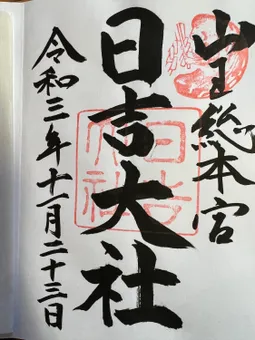 山王総本宮
日吉大社
令和三年十一月二十三日